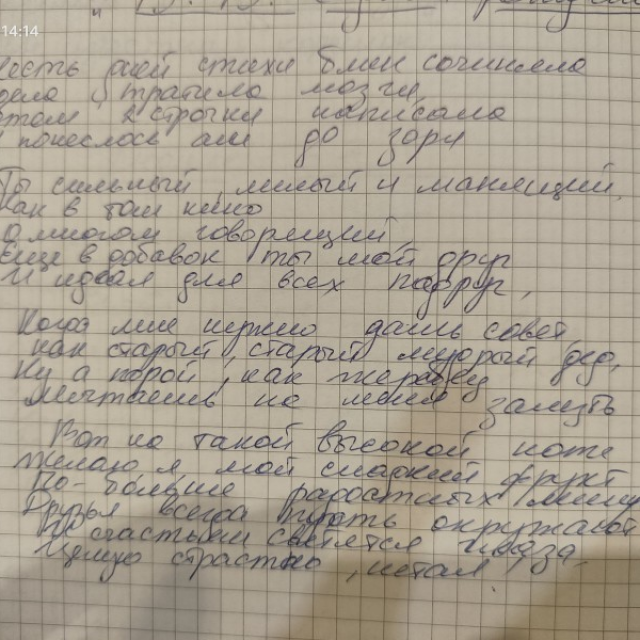 14:14
честь дней стихи блин сочиняла
тратила мозги
2 строчки написала
понеслось аш до зори
Ты сильный, милый и манящий,
как в том кино
о многом говорящий,
Еще в добавок ты мой друг
И идеал для всех подруг,
Когда мне нужно дашь совет,
как старый, старый мудрый дед,
Ну а порой, как жеребец
Мечтаешь на меня залезть
Вот на такой высокой ноте
желаю я мой сладкий фрукт
По-больше радостных минут
Друзья всегда пусть окружают
счастьем светятся глаза,
Целую страстно, нетал.